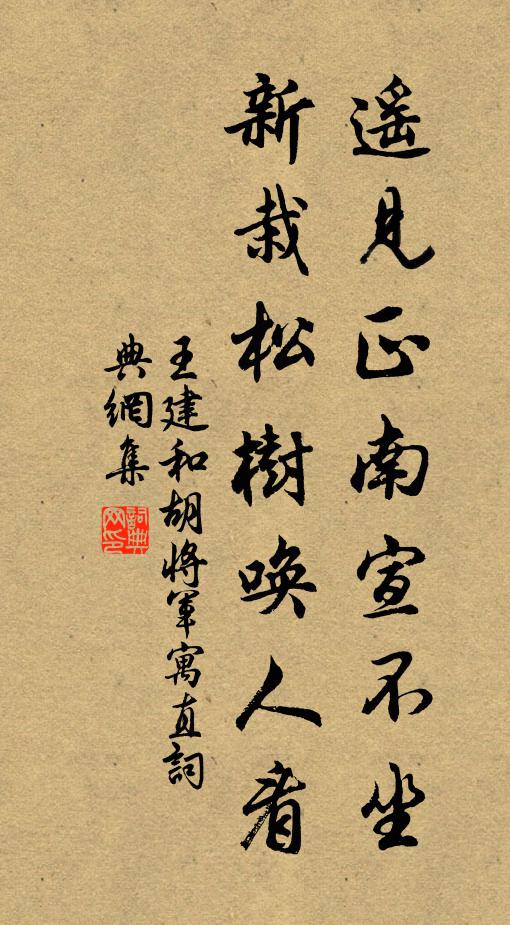 遙見正南宣不坐
新栽松樹喚人看
王建和胡將軍寓直詞
典網集
詞典
网印